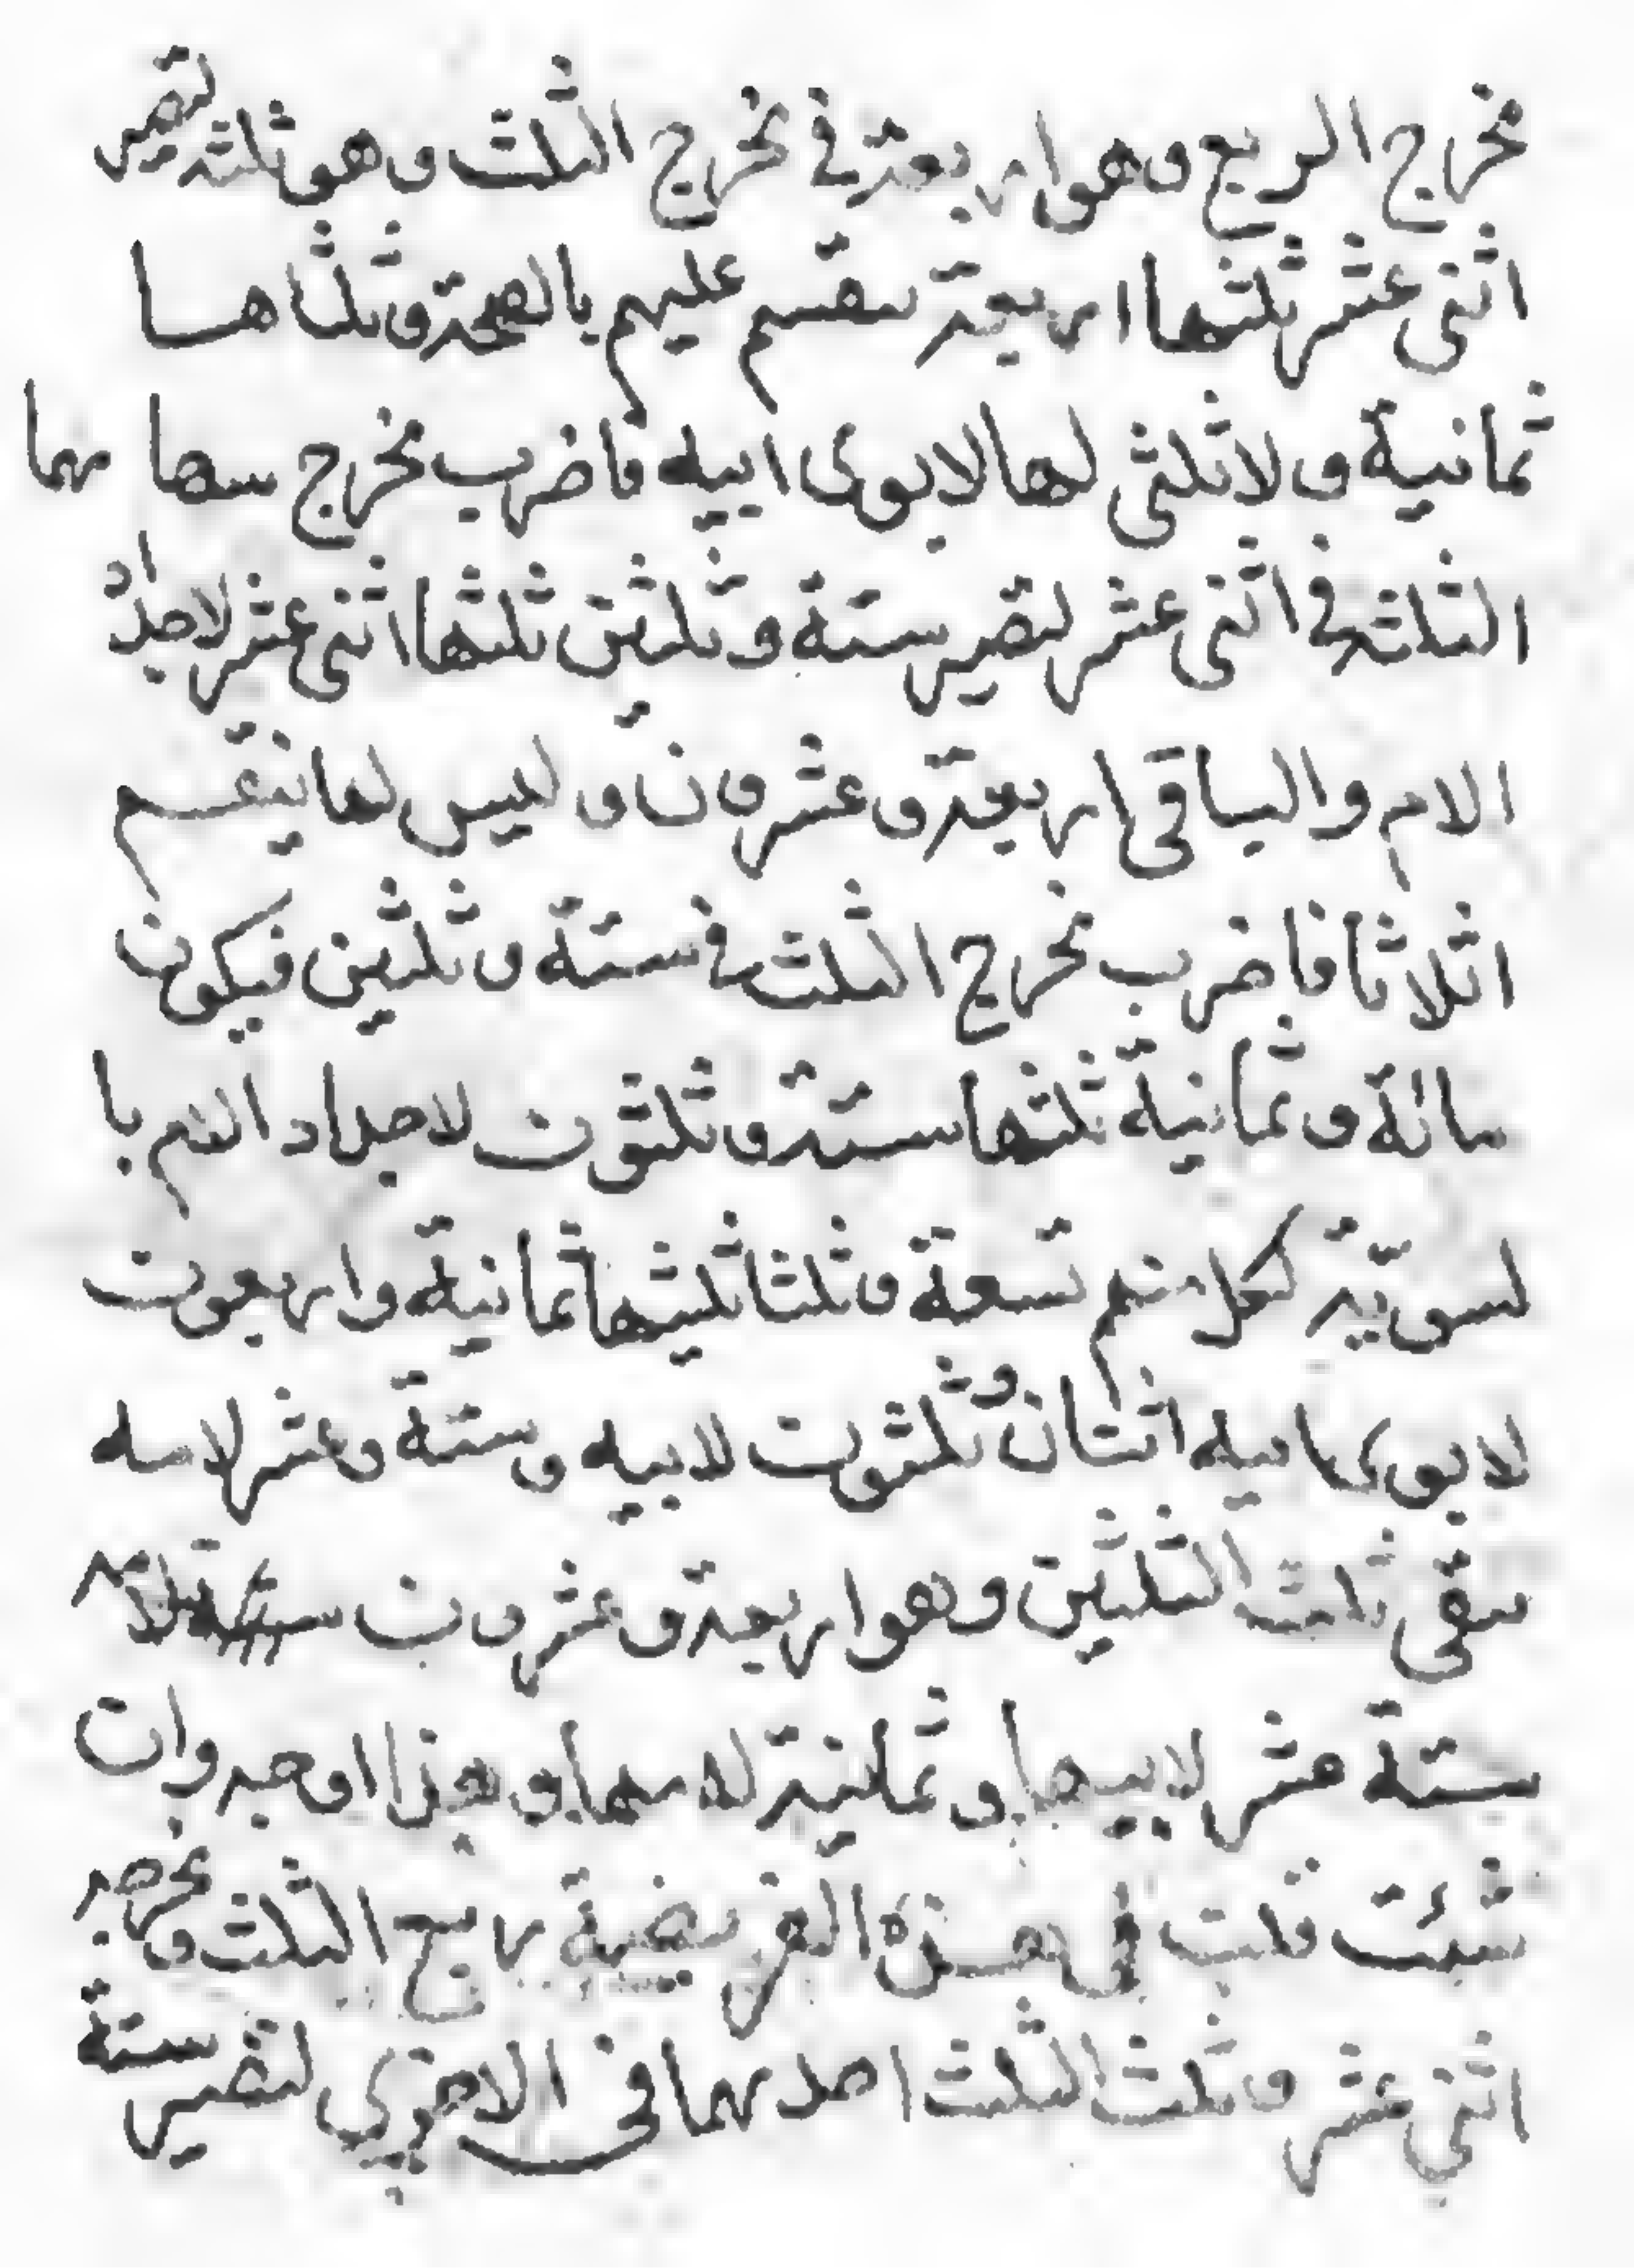 مخرج الربع وهو اربعة في مخرج الثلث وهو ثلثة تصير
اثنى عشر ثلثها اربعة تنقسم عليهم بالصحة وثلثاها
ثمانية ولا ثلثى لها لابوى ابيه فاضرب مخرج سهامهما
الثلثة في اثنى عشر لتصير ستة وثلثين ثلثها اثنى عشر لاجداد
الام والباقى اربعة وعشرون وليس لها ينقسم
اثلاثا فاضرب مخرج الثلث في ستة وثلثين فيكون
مائة وثمانية ثلثها ستة وثلثون لاجداد الام با
لسوية لكل منهم تسعة وثلثا ثلثيها ثمانية واربعون
لابوى ابيه اثنتان وثلثون لابيه وستة وعشر لامه
يبقى ثلث الثلثين وهو اربعة وعشرون لام
ستة عشر لابيها وثمانية لامها وهذا اوجه وان
شئت قلت في هذه الفريضة ربع الثلث ومخرجه
اثنى عشر وثلث الثلث احدهما في الاخرى لتصير ستة